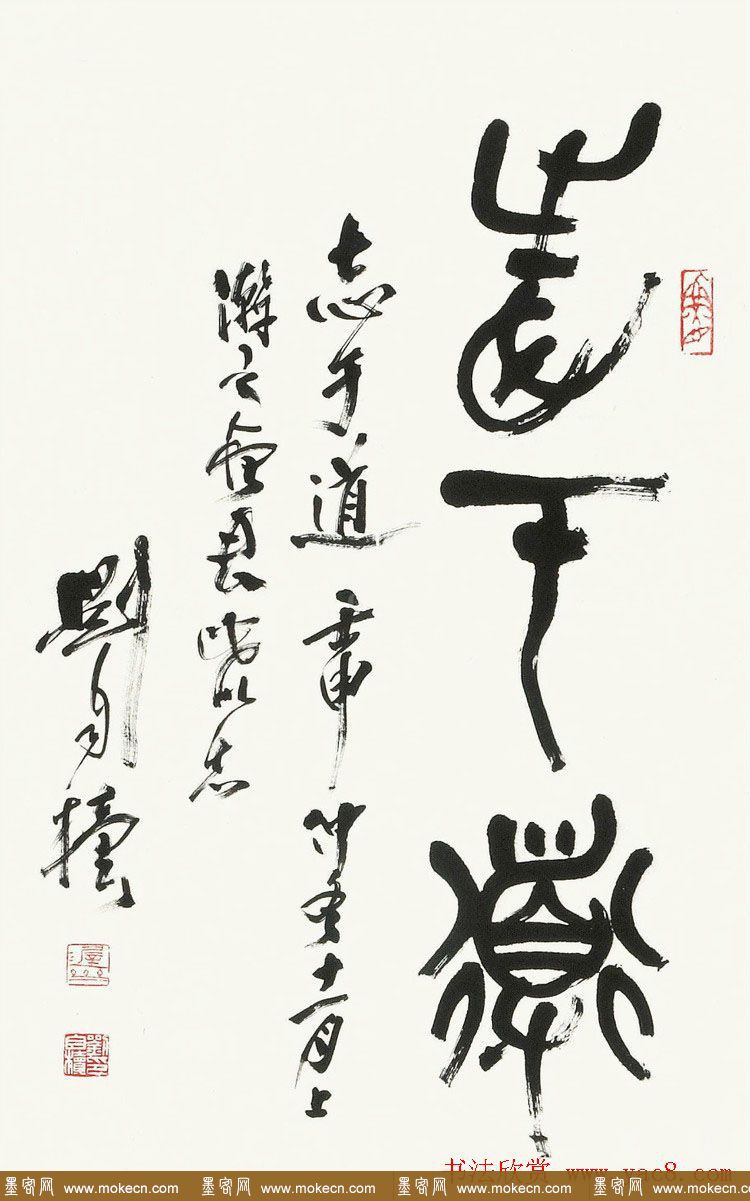 志于道
志于道 壬申 仲冬十一月上
澣之 以志
劉自櫝
书法欣赏 www.yac8.com
墨客网 www.mokecn.com 墨客网 www.mokecn.com 墨客网 www.mokecn.com 墨客网 www.mokecn.com